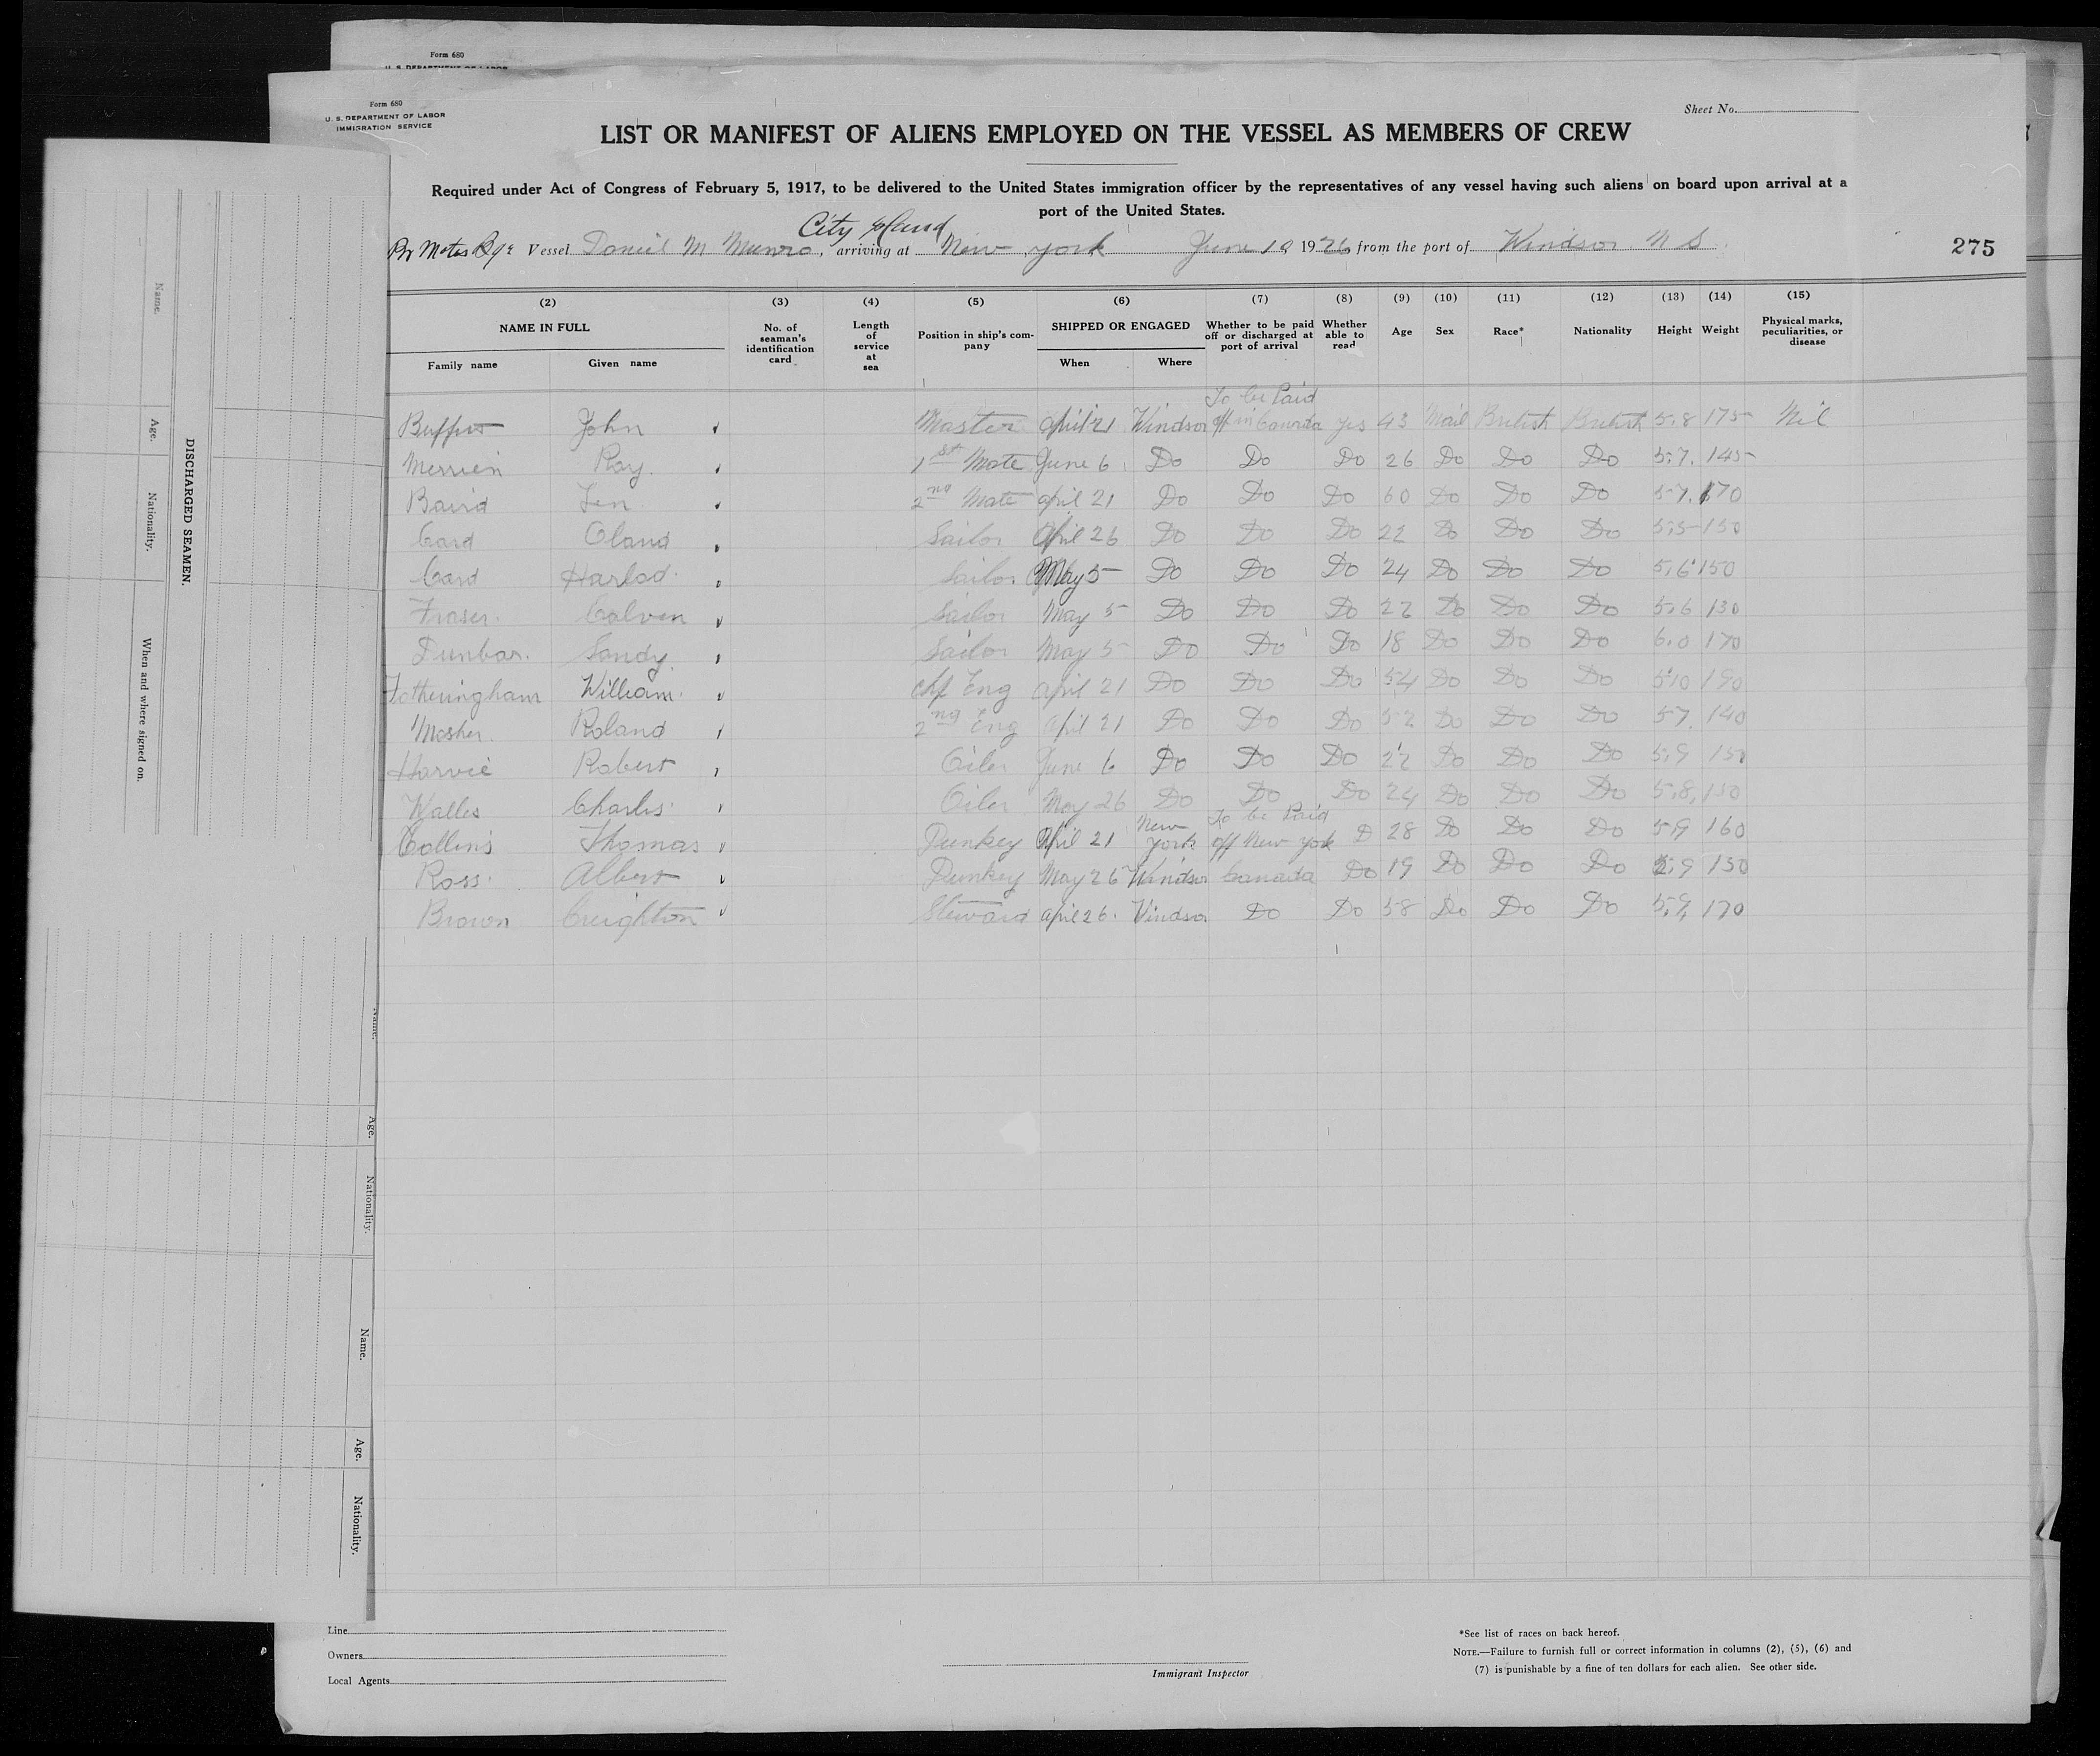 Form 680
U. S. DEPARTMENT OF LABOR
Form 680
U. S. DEPARTMENT OF LABOR
IMMIGRATION SERVICE
Sheet No.
LIST OR MANIFEST OF ALIENS EMPLOYED ON THE VESSEL AS MEMBERS OF CREW
Required under Act of Congress of February 5, 1917, to be delivered to the United States immigration officer by the representatives of any vessel having such aliens on board upon arrival at a
port of the United States.
City Island
Br Motor Vessel Daniel M Munro, arriving at New York June 10 1926 from the port of Windsor N S
275
(2) (3) (4) (5) (6) (7) (8) (9) (10) (11) (12) (13) (14) (15)
NAME IN FULL
Family name Given name
No. of seaman's identification card
Length of service at sea
Position in ship's company
SHIPPED OR ENGAGED
When Where
Whether to be paid off or discharged at port of arrival
Whether able to read
Age Sex Race* Nationality Height Weight
Physical marks, peculiarities, or disease
To be Paid
John Master April 21 Windsor off in Canada yes 43 Mail British British 5.8 175 Nil
Merrien Roy 1st Mate June 6 Do Do Do 26 Do Do Do 5.7. 145
Baird Len 2nd Mate april 21 Do Do Do 60 Do Do Do 5.7. 170
Card Oland Sailor April 26 Do Do Do 22 Do Do Do 5.5 150
Card Harlod Sailor May 5 Do Do Do 24 Do Do Do 5.6 150
Fraser Calven Sailor May 5 Do Do Do 22 Do Do Do 5.6 130
Dunbar Sandy Sailor May 5 Do Do Do 18 Do Do Do 6.0 170
Fotheringham William chf Eng april 21 Do Do Do 54 Do Do Do 5.10 190
Mosher Roland 2nd Eng april 21 Do Do Do 52 Do Do Do 5.7. 140
Harvie Robert Oiler June 6 Do Do Do 22 Do Do Do 5.9 150
Walles Charles Oiler May 26 Do Do Do 24 Do Do Do 5.8, 150
New To be Paid
Collins Thomas Dunkey April 21 York off New York D 28 Do Do Do 5.9 160
Ross Albert Dunkey May 26 Windsor Canada Do 19 Do Do Do 5.9 150
Brown Creighton Steward april 26 Windsor Do Do 58 Do Do Do 5.9. 170
DISCHARGED SEAMEN.
Name.
Age.
Nationality.
When and where signed on.
Name.
Age.
Nationality.
Name.
Age.
Nationality.
Line
Owners
Local Agents
Immigrant Inspector
*See list of races on back hereof.
NOTE.—Failure to furnish full or correct information in columns (2), (5), (6) and
(7) is punishable by a fine of ten dollars for each alien. See other side.